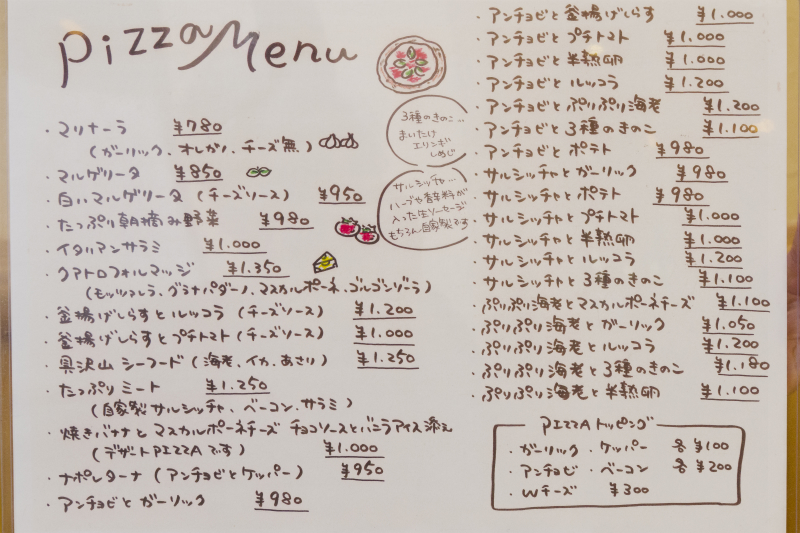 Pizza Menu
・マリナーラ ¥780
(ガーリック、オレガノ、チーズ無)
・マルゲリータ ¥850
・白いマルゲリータ (チーズソース) ¥950
・たっぷり朝摘み野菜 ¥980
・イタリアンサラミ ¥1.000
・クアトロフォルマッジ ¥1.350
(モッツァレラ、グラナパダーノ、マスカルポーネ、ゴルゴンゾーラ)
・釜揚げしらすとルッコラ (チーズソース) ¥1.200
・釜揚げしらすとプチトマト (チーズソース) ¥1.000
・具沢山シーフード (海老、イカ、あさり) ¥1.250
・たっぷりミート ¥1.250
(自家製サルシッチャ、ベーコン、サラミ)
・焼きバナナとマスカルポーネチーズ チョコソースとバニラアイス添え
(デザートPIZZAです) ¥1.000
・ナポレターナ (アンチョビとケッパー) ¥950
・アンチョビとガーリック ¥980
3種のきのこ…
まいたけ
エリンギ
しめじ
サルシッチャ…
ハーブや香辛料が
入った生ソーセージ
もちろん自家製です
・アンチョビと釜揚げしらす ¥1.000
・アンチョビとプチトマト ¥1.000
・アンチョビと半熟卵 ¥1.000
・アンチョビとルッコラ ¥1.200
・アンチョビとぷりぷり海老 ¥1.200
・アンチョビと3種のきのこ ¥1.100
・アンチョビとポテト ¥980
・サルシッチャとガーリック ¥980
・サルシッチャとポテト ¥980
・サルシッチャとプチトマト ¥1.000
・サルシッチャと半熟卵 ¥1.000
・サルシッチャとルッコラ ¥1.200
・サルシッチャと3種のきのこ ¥1.100
・ぷりぷり海老とマスカルポーネチーズ ¥1.100
・ぷりぷり海老とガーリック ¥1.050
・ぷりぷり海老とルッコラ ¥1.200
・ぷりぷり海老と3種のきのこ ¥1.180
・ぷりぷり海老と半熟卵 ¥1.100
PIZZAトッピング
・ガーリック ・ケッパー 各¥100
・アンチョビ ・ベーコン 各¥200
・Wチーズ ¥300